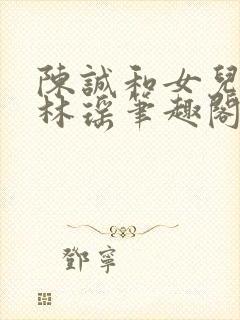 陳誠和女兒
林瑶筆趣閣
鄧寧